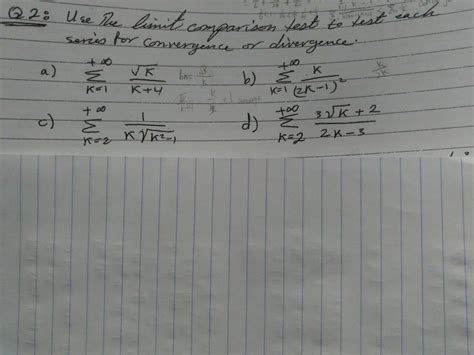 Q2: Use The limit comparison test to test each
series for convergence or divergence.
a) +∞ Σ K=1 √K / K+4 b) +∞ Σ K=1 K / (2K-1)²
c) +∞ Σ K=2 1 / K√K²-1 d) +∞ Σ K=2 3√K + 2 / 2K-3